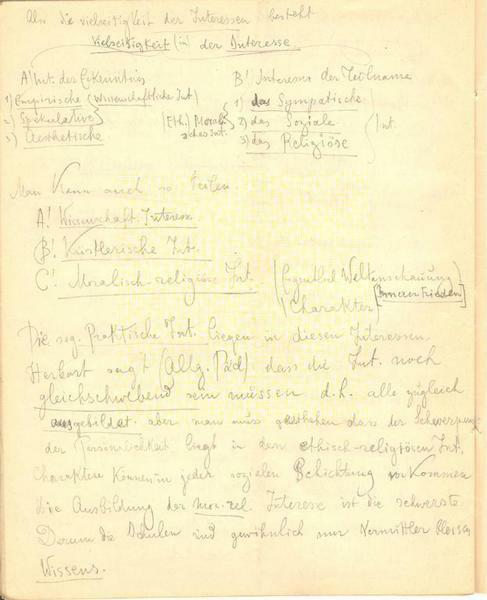 Also die vielseitigkeit der Interessen besteht
Vielseitigkeit (in) der Interesse.
A) Int. der Erkenntnis
B) Interesse der Teilname
1) Empirische (Wissenschaftliche Int.)
1) das Sympatische
2) Spekulative
(Eth.) Moral-
2) das Soziale
Int.
3) Aesthetische
isches Int.
3) das Religiöse
Man kann auch so teilen.
A! Wissenschaft. Interesse
B! Künstlerische Int.
C! Moralisch-religiöse Int.
Weltanschauung
Charakter [Innern Frieden]
Die sog. Praktische Int. liegen in diesen Interessen
Herbart sagt (Allg. Päd) dass die Int. noch
gleichschwebend sein müssen d.h. alle zugleich
ausgebildet. aber man muss gestehen dass der Schwerpunk
der Persönlichkeit liegt in den ethisch-religiören Int.
Charaktere können in jeder sozialen vorkommen
Die Ausbildung der mor.-rel. Interesse ist die schwerste
Darum die Schulen sind gewöhnlich nur Vermittler
Wissens.